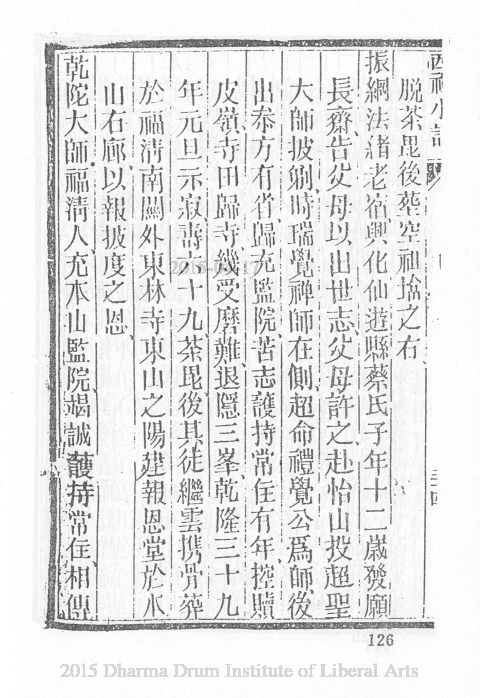 西禪小記
脱茶毘後塟空祖塔之右
振綱法緒老宿興化仙遊縣蔡氏子年十二歲發願
長齋告父母以出世志父母許之赴怡山投超聖
大師披剃時瑞覺禪師在側超命禮覺公爲師後
出叅方有省歸充監院苦志護持常住有年控贖
皮嶺寺田歸寺幾受磨難退隱三峯乾隆三十九
年元旦示寂壽六十九茶毘後其徒繼雲携骨葬
於福清南關外東林寺東山之陽建報恩堂於本
山右廊以報披度之恩
乾陀大師福清人充本山監院竭誠護持常住相傳
三四
126
2015 Dharma Drum Institute of Liberal Arts